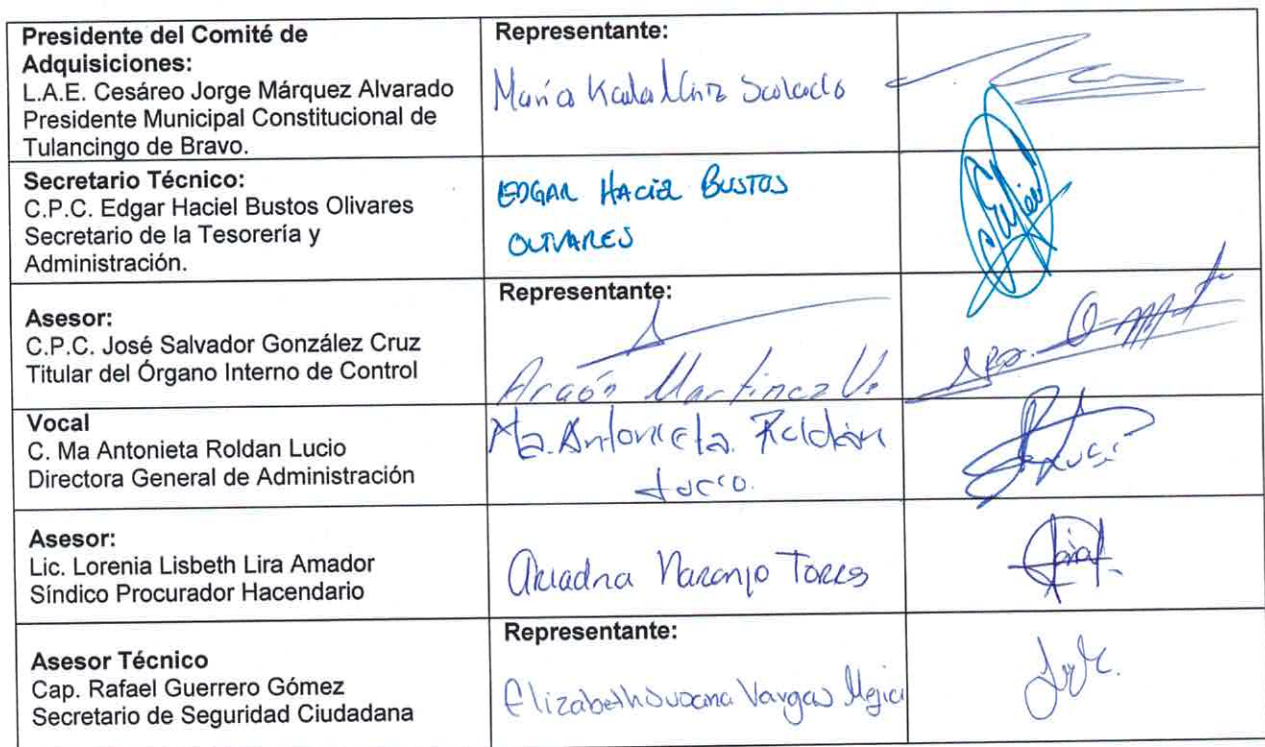 Presidente del Comité de
Adquisiciones:
L.A.E. Cesáreo Jorge Márquez Alvarado
Presidente Municipal Constitucional de
Tulancingo de Bravo.
Representante:
María Karla
Secretario Técnico:
C.P.C. Edgar Haciel Bustos Olivares
Secretario de la Tesorería y
Administración.
EDGAR HACIEL BUSTOS
OLIVARES
Asesor:
C.P.C. José Salvador González Cruz
Titular del Órgano Interno de Control
Representante:
Aragón Martínez V.
Vocal
C. Ma Antonieta Roldan Lucio
Directora General de Administración
Ma. Antonieta. Roldán
Lucio.
Asesor:
Lic. Lorenia Lisbeth Lira Amador
Síndico Procurador Hacendario
Ariadna Naranjo Torres
Asesor Técnico
Cap. Rafael Guerrero Gómez
Secretario de Seguridad Ciudadana
Representante:
Elizabeth Susana Vargas Mejia